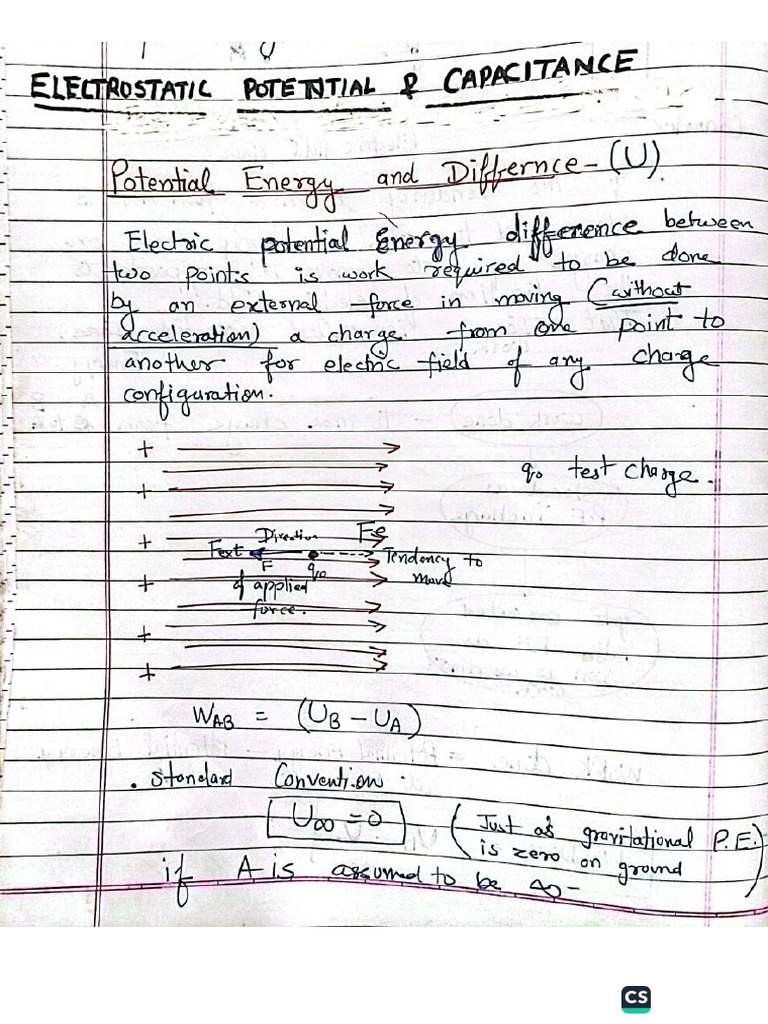 ELECTROSTATIC POTETNTIAL & CAPACITANCE
Potential Energy and Differnce - (U)
Electric potential Energy difference between
two points is work required to be done
by an external force in moving (without
acceleration) a charge from one point to
another for electric field of any charge
configuration.
+
+
q₀ test charge.
+ Direction Fe
Fext F q₀ Tendency to move
+ of applied
force.
+
+
W_AB = (U_B - U_A)
. Standard Convention.
U∞ = 0 (Just as gravitational P.E. is zero on ground)
if A is assumed to be ∞ -
CS